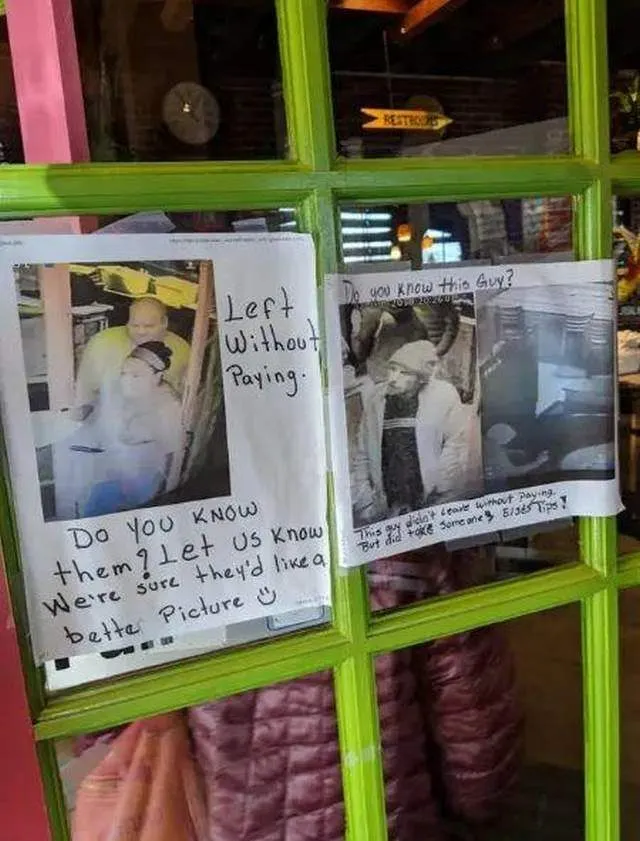 RESTROOMS
Left
Without
Paying.
Do you know
them? Let us know
We're sure they'd like a
better Picture
Do you know this Guy?
This guy didn't leave without paying.
But did take someone's Elses Tips!